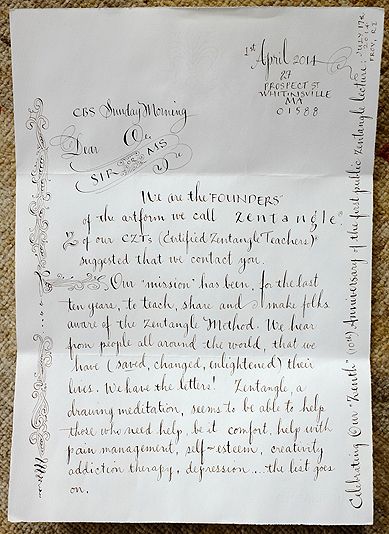 1st April 2014
27
PROSPECT ST
WHITINSVILLE
MA
01588
CBS Sunday Morning
Dear
SIR MS
We are the "FOUNDERS"
of the artform we call Zentangle.®
2 of our CZTs (Certified Zentangle Teachers)
suggested that we contact you.
Our "mission" has been, for the last
ten years, to teach, share and make folks
aware of the Zentangle Method. We hear
from people all around the world, that we
have (saved, changed, enlightened) their
lives. We have the letters! Zentangle, a
drawing meditation, seems to be able to help
those who need help, be it comfort, help with
pain management, self-esteem, creativity
addiction therapy, depression... the list goes
on.
Celebrating Our "Zenth" (10th) Anniversary of the first public Zentangle lecture:
JULY 17th
2014
PROV, RI